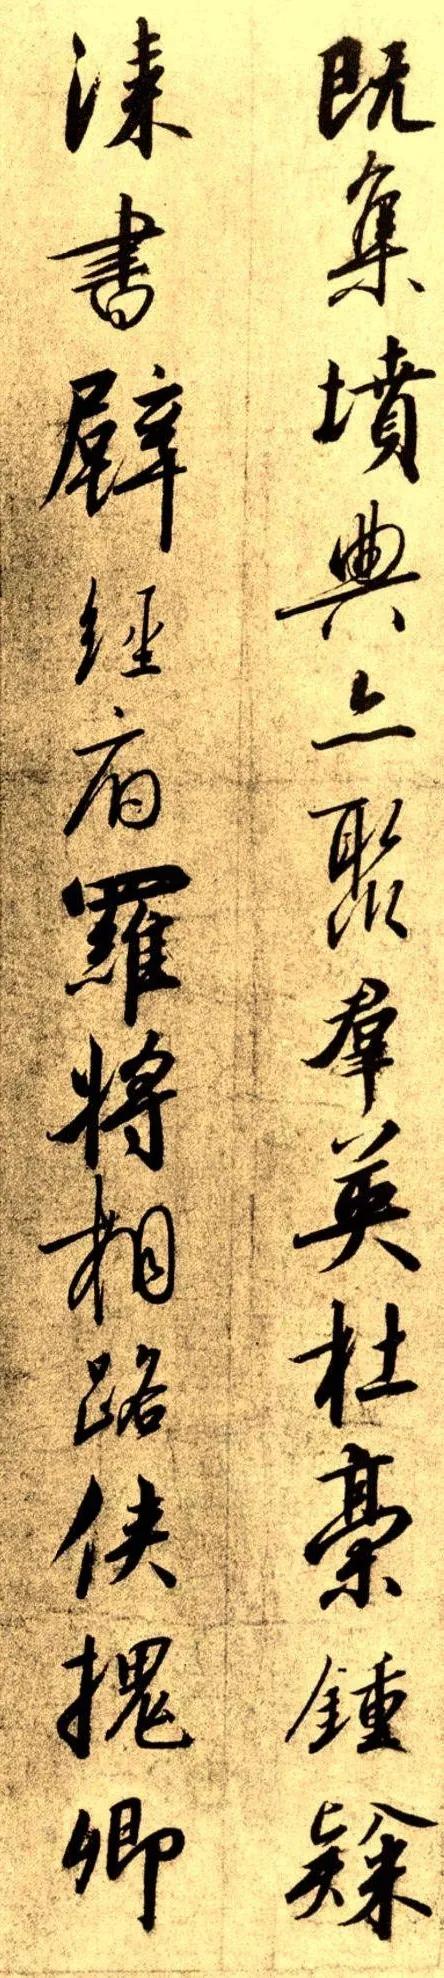 既集墳典亦聚群英杜稾鍾隸
漆書壁經府羅將相路俠槐卿